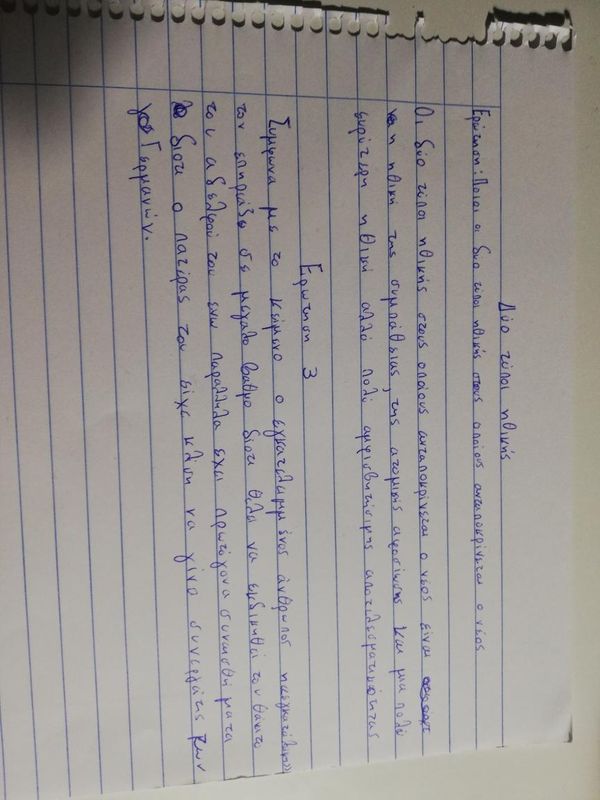 Δύο τύποι ηθικής
Ερώτηση: Ποιοι οι δύο τύποι ηθικής στους οποίους ανταποκρίνεται ο νέος
Οι δύο τύποι ηθικής στους οποίους ανταποκρίνεται ο νέος είναι
η ηθική της συμπάθειας, της ατομικής αφοσίωσης και μια πολύ
ευρύτερη ηθική αλλά πολύ αμφισβητήσιμης αποτελεσματικότητας
Ερώτηση 3
Συμφωνα με το κείμενο ο εγκατελειμμένος άνθρωπος
τον επηρεάζει σε μεγαλο βαθμο διοτι θελει να εκδικηθεί τον θάνατο
του αδελφού του ενω παραλληλα εχει πρωτόγονα συναισθήματα
διοτι ο πατέρας του είχε κλίση να γίνει συνεργάτης των
Γερμανών.